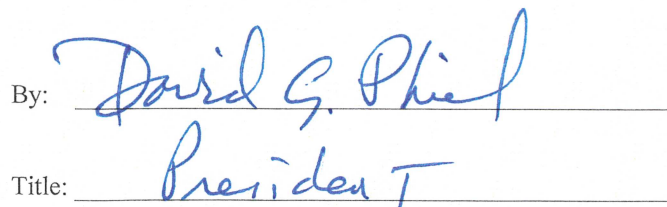 By: David G. Phiel
Title: President